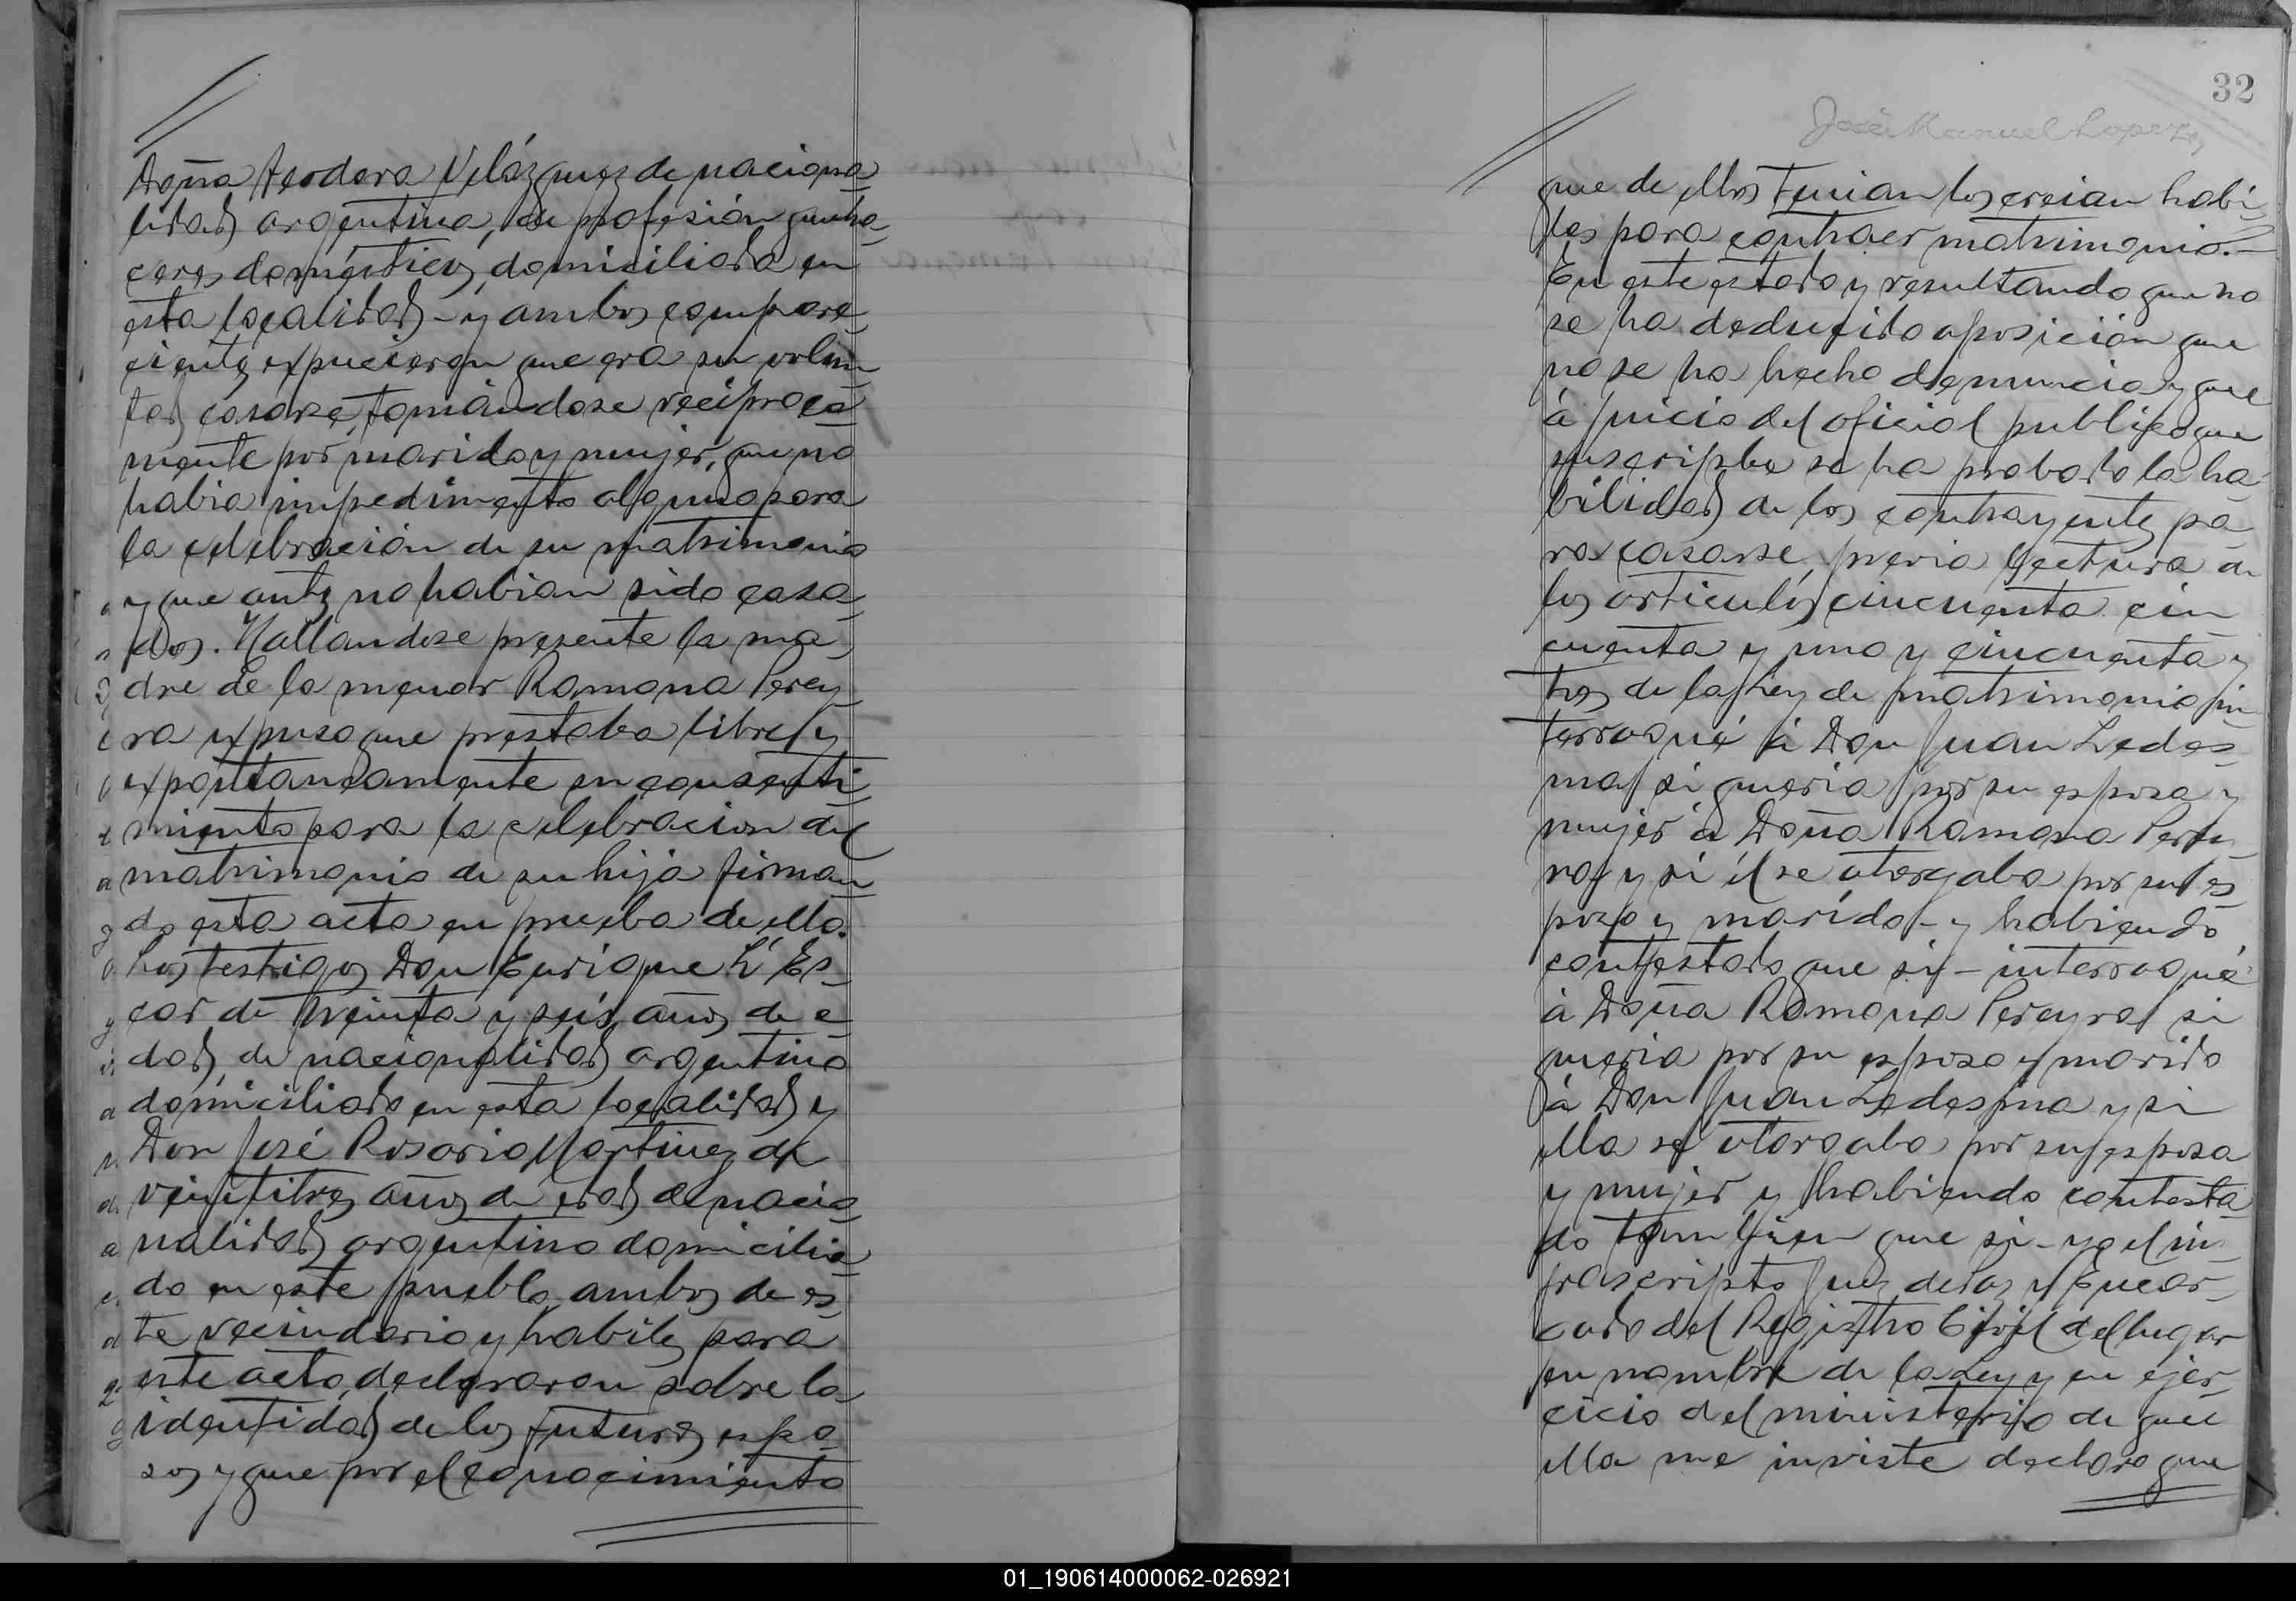 Doña Teodora Velázquez de naciona
lidad argentina, de profesión queha
ceres domésticos, domiciliada en
esta localidad - y ambos compare
cientes expucieron que era su volun
tad casarse, tomándose recíproca
mente por marido y mujer, que no
habia impedimento alguno para
la celebración de su matrimonio
y que antes no habian sido casa
dos. Hallandose presente la ma
dre de la menor Ramona Perey
ra expuso que prestaba libre y
expontaneamente su consenti
miento para la celebracion del
matrimonio de su hija firman
do esta acta en prueba de ello.
Los testigos Don Enrique L' Es
car de treinta y seis años de e
dad, de nacionalidad argentino
domiciliado en esta localidad y
Don José Rosario Martinez de
veintitres años de edad de nacio
nalidad argentino domicilia
do en este pueblo ambos de es
te vecindario y habiles para
este acto, declararon sobre la
identidad de los futuros espo
sos y que por el conocimiento
32
José Manuel Lopez
que de ellos tenian los creian habi
les para contraer matrimonio.-
En este estado y resultando que no
se ha deducido oposición que
no se ha hecho denuncia y que
á juicio del oficial publico que
suscripbe se ha probado la ha
bilidad de los contrayentes pa
ra casarse, previa lectura de
los articulos cincuenta cin
cuenta y uno y cincuenta y
tres de la Ley de matrimonio in
terrogué á Don Juan Ledes
ma si queria por su esposa y
mujer á Doña Ramona Perey
ra y si él se otorgaba por su es
poso y marido - y habiendo
contestado que si - interrogué
á Doña Ramona Pereyra si
queria por su esposo y marido
á Don Juan Ledesma y si
ella se otorgaba por su esposa
y mujer y habiendo contesta
do tambien que si - yo el in
frascripto Juez de Paz y Encar
gado del Registro Civil del lugar
en nombre de la Ley y en ejer
cicio del ministerio de que
ella me inviste declaro que
01_190614000062-026921